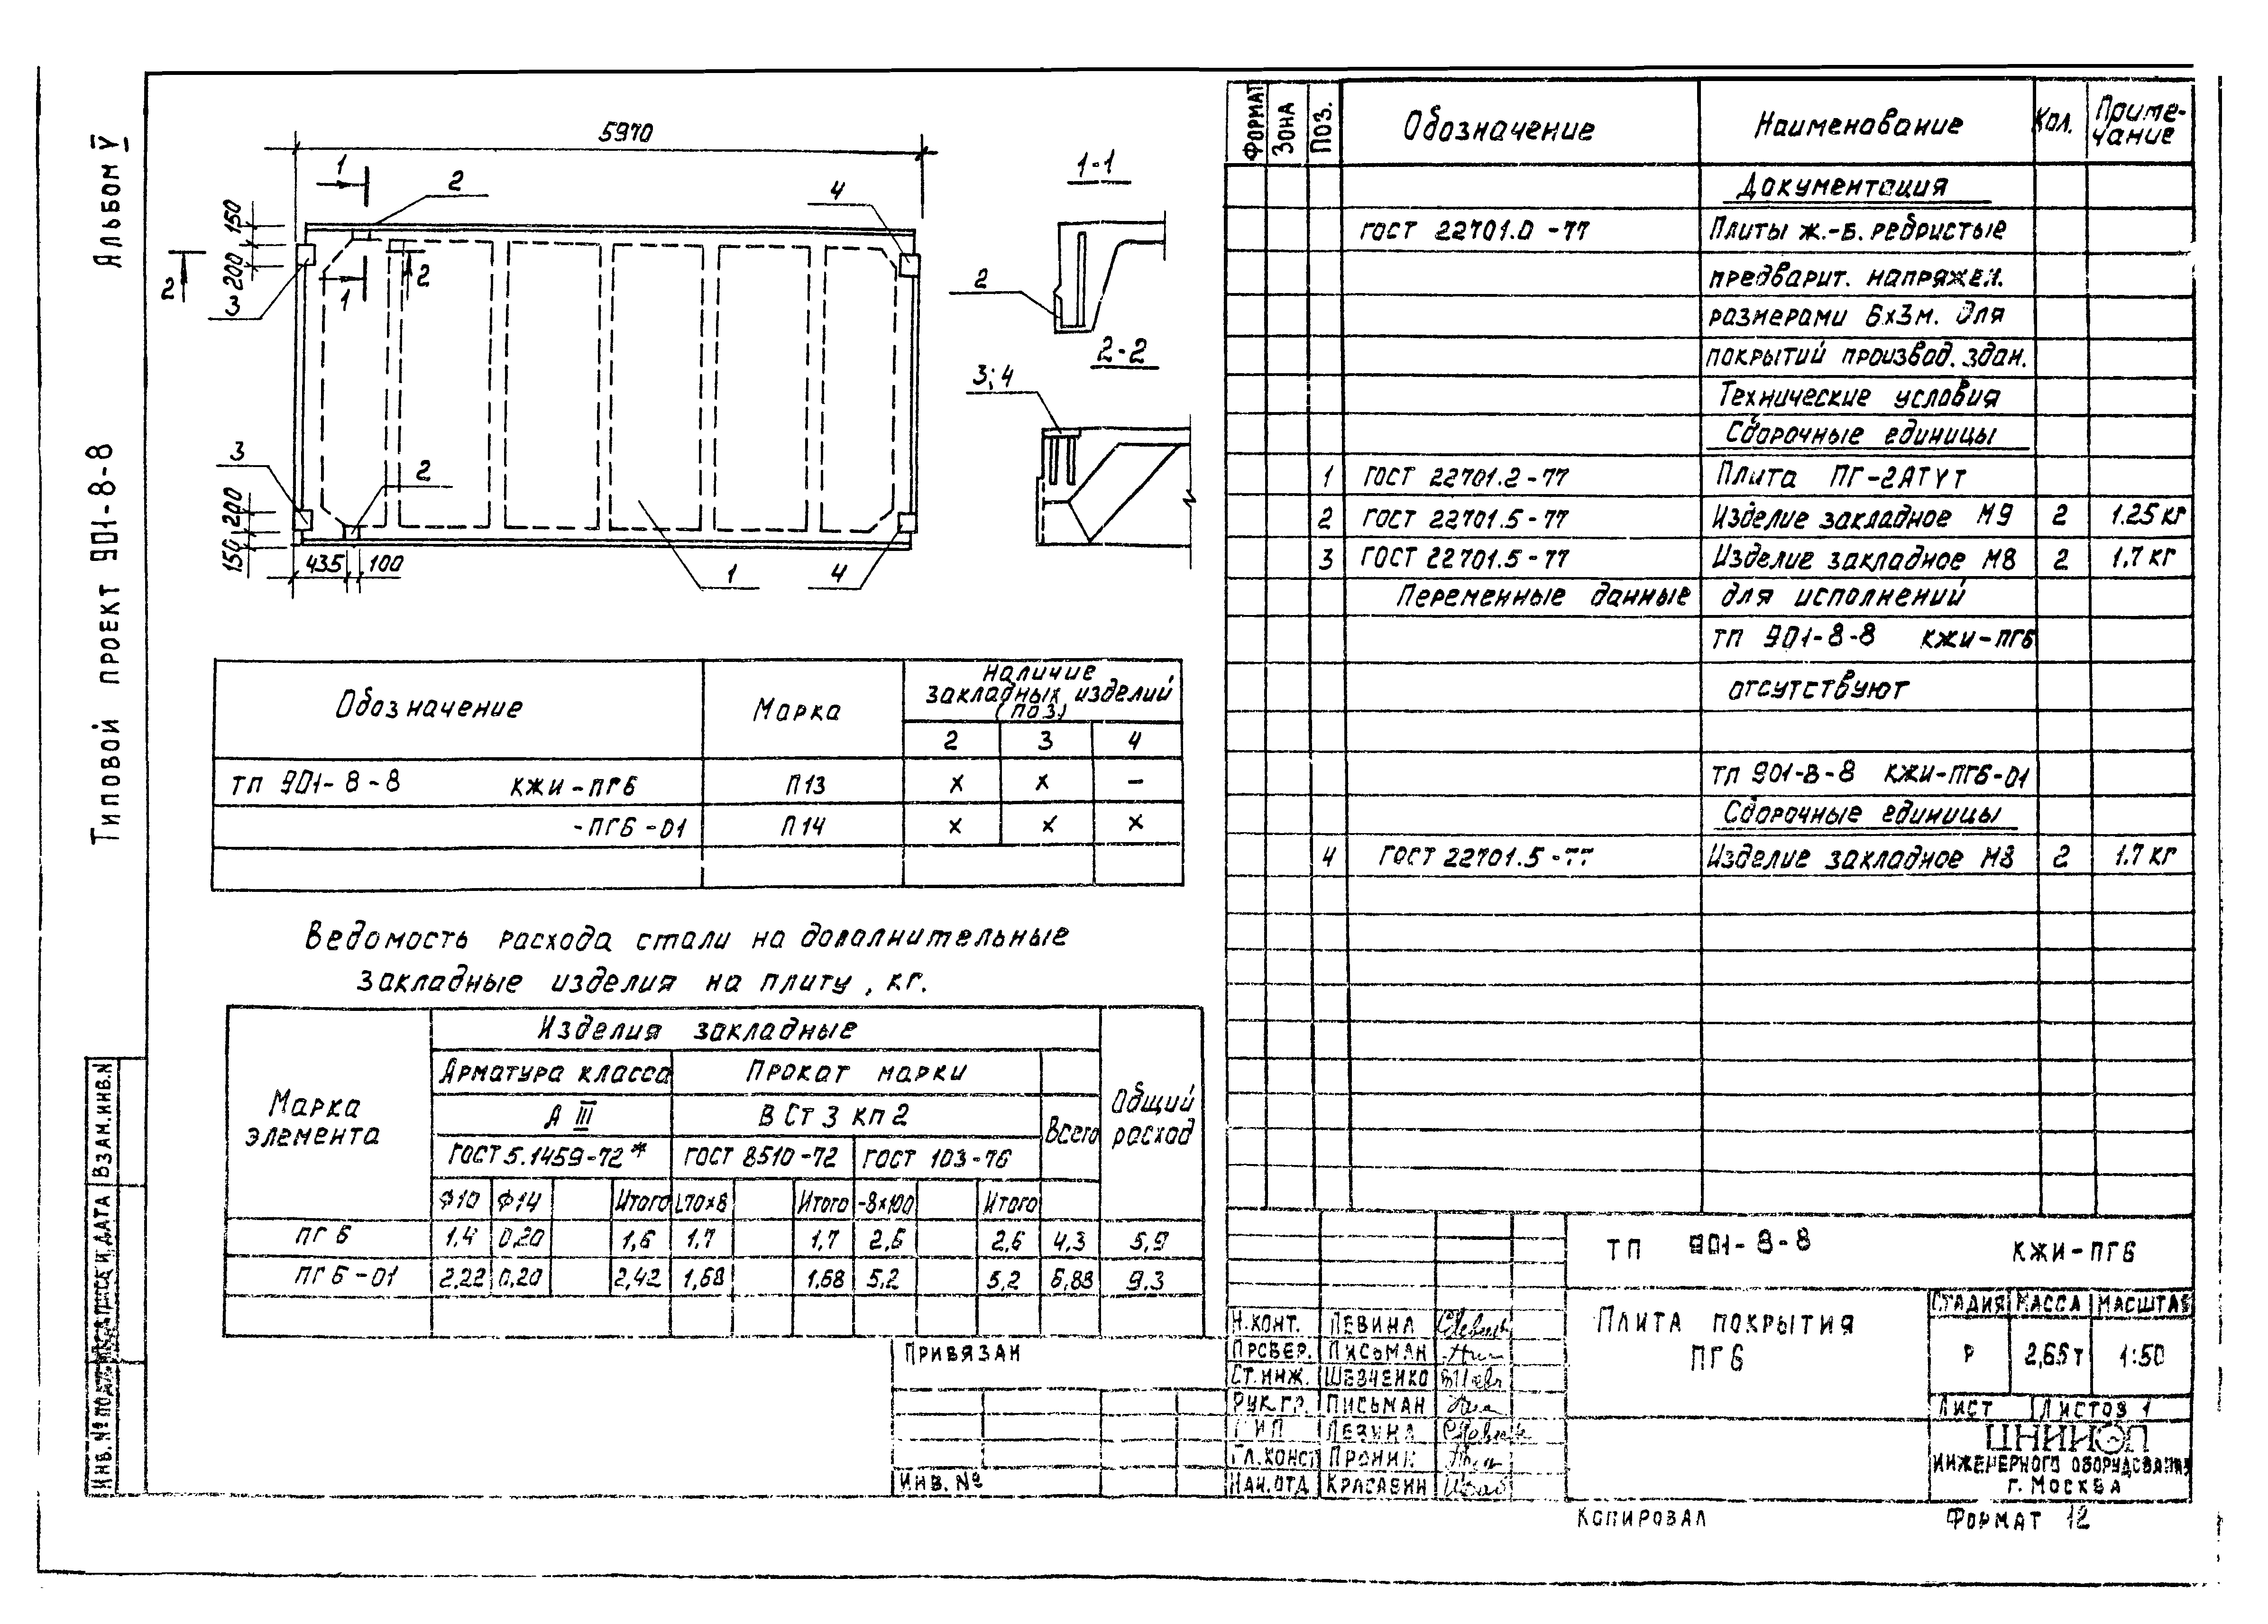 Альбом V
Типовой проект 901-8-8
Взам.инв.N
Инв.№
5970
1
2
4
1-1
150
200
2
3
1
2
2
2-2
3;4
3
2
200
150
435
100
1
4
Обозначение
Марка
Наличие
закладных изделий
(поз)
2 3 4
ТП 901-8-8 КЖИ-ПГ6 П13 х х –
-ПГ6-01 П14 х х х
Ведомость расхода стали на дополнительные
закладные изделия на плиту, кг.
Марка
элемента
Изделия закладные
Общий
расход
Арматура класса
Прокат марки
Всего
А III
В Ст 3 кп 2
ГОСТ 5.1459-72*
ГОСТ 8510-72
ГОСТ 103-76
Ф10 Ф14 Итого L70х8 Итого -8х100 Итого
ПГ 6 1,4 0,20 1,6 1,7 1,7 2,6 2,6 4,3 5,9
ПГ 6-01 2,22 0,20 2,42 1,68 1,68 5,2 5,2 6,88 9,3
Привязан
Инв. №
Формат Зона Поз. Обозначение Наименование Кол. Приме-
чание
Документация
ГОСТ 22701.0-77 Плиты ж.-б. ребристые
предварит. напряжен.
размерами 6х3м. для
покрытий производ. здан.
Технические условия
Сборочные единицы
1 ГОСТ 22701.2-77 Плита ПГ-2АТVТ
2 ГОСТ 22701.5-77 Изделие закладное М9 2 1.25 кг
3 ГОСТ 22701.5-77 Изделие закладное М8 2 1.7 кг
Переменные данные для исполнений
ТП 901-8-8 КЖИ-ПГ6
отсутствуют
ТП 901-8-8 КЖИ-ПГ6-01
Сборочные единицы
4 ГОСТ 22701.5-77 Изделие закладное М8 2 1.7 кг
ТП 901-8-8 КЖИ-ПГ6
Плита покрытия
ПГ6
Стадия Масса Масштаб
Р 2,65т 1:50
Лист Листов 1
ЦНИИЭП
инженерного оборудования
г. Москва
Н.конт. Левина
Провер. Письман
Ст.инж. Шевченко
Рук.гр. Письман
ГИП Левина
Гл.конст Пронин
Нач.отд Красавин
Копировал
Формат 12